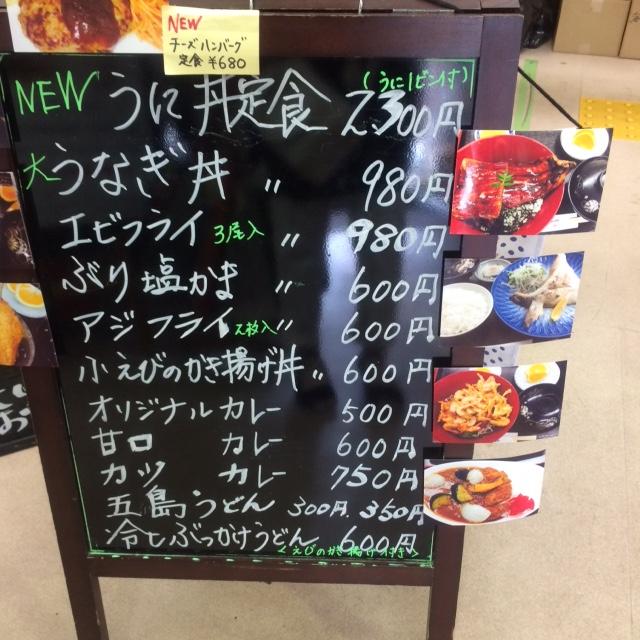 NEW
チーズハンバーグ
定食 ¥680
NEW うに丼定食 (うに1ビン付) 2,300円
大うなぎ丼 〃 980円
エビフライ 3尾入 〃 980円
ぶり塩かま 〃 600円
アジフライ 2枚入 〃 600円
小えびのかき揚げ丼 〃 600円
オリジナルカレー 500円
甘口 カレー 600円
カツ カレー 750円
五島うどん 300円. 350円
冷しぶっかけうどん 600円
<えびのかき揚げ付き>